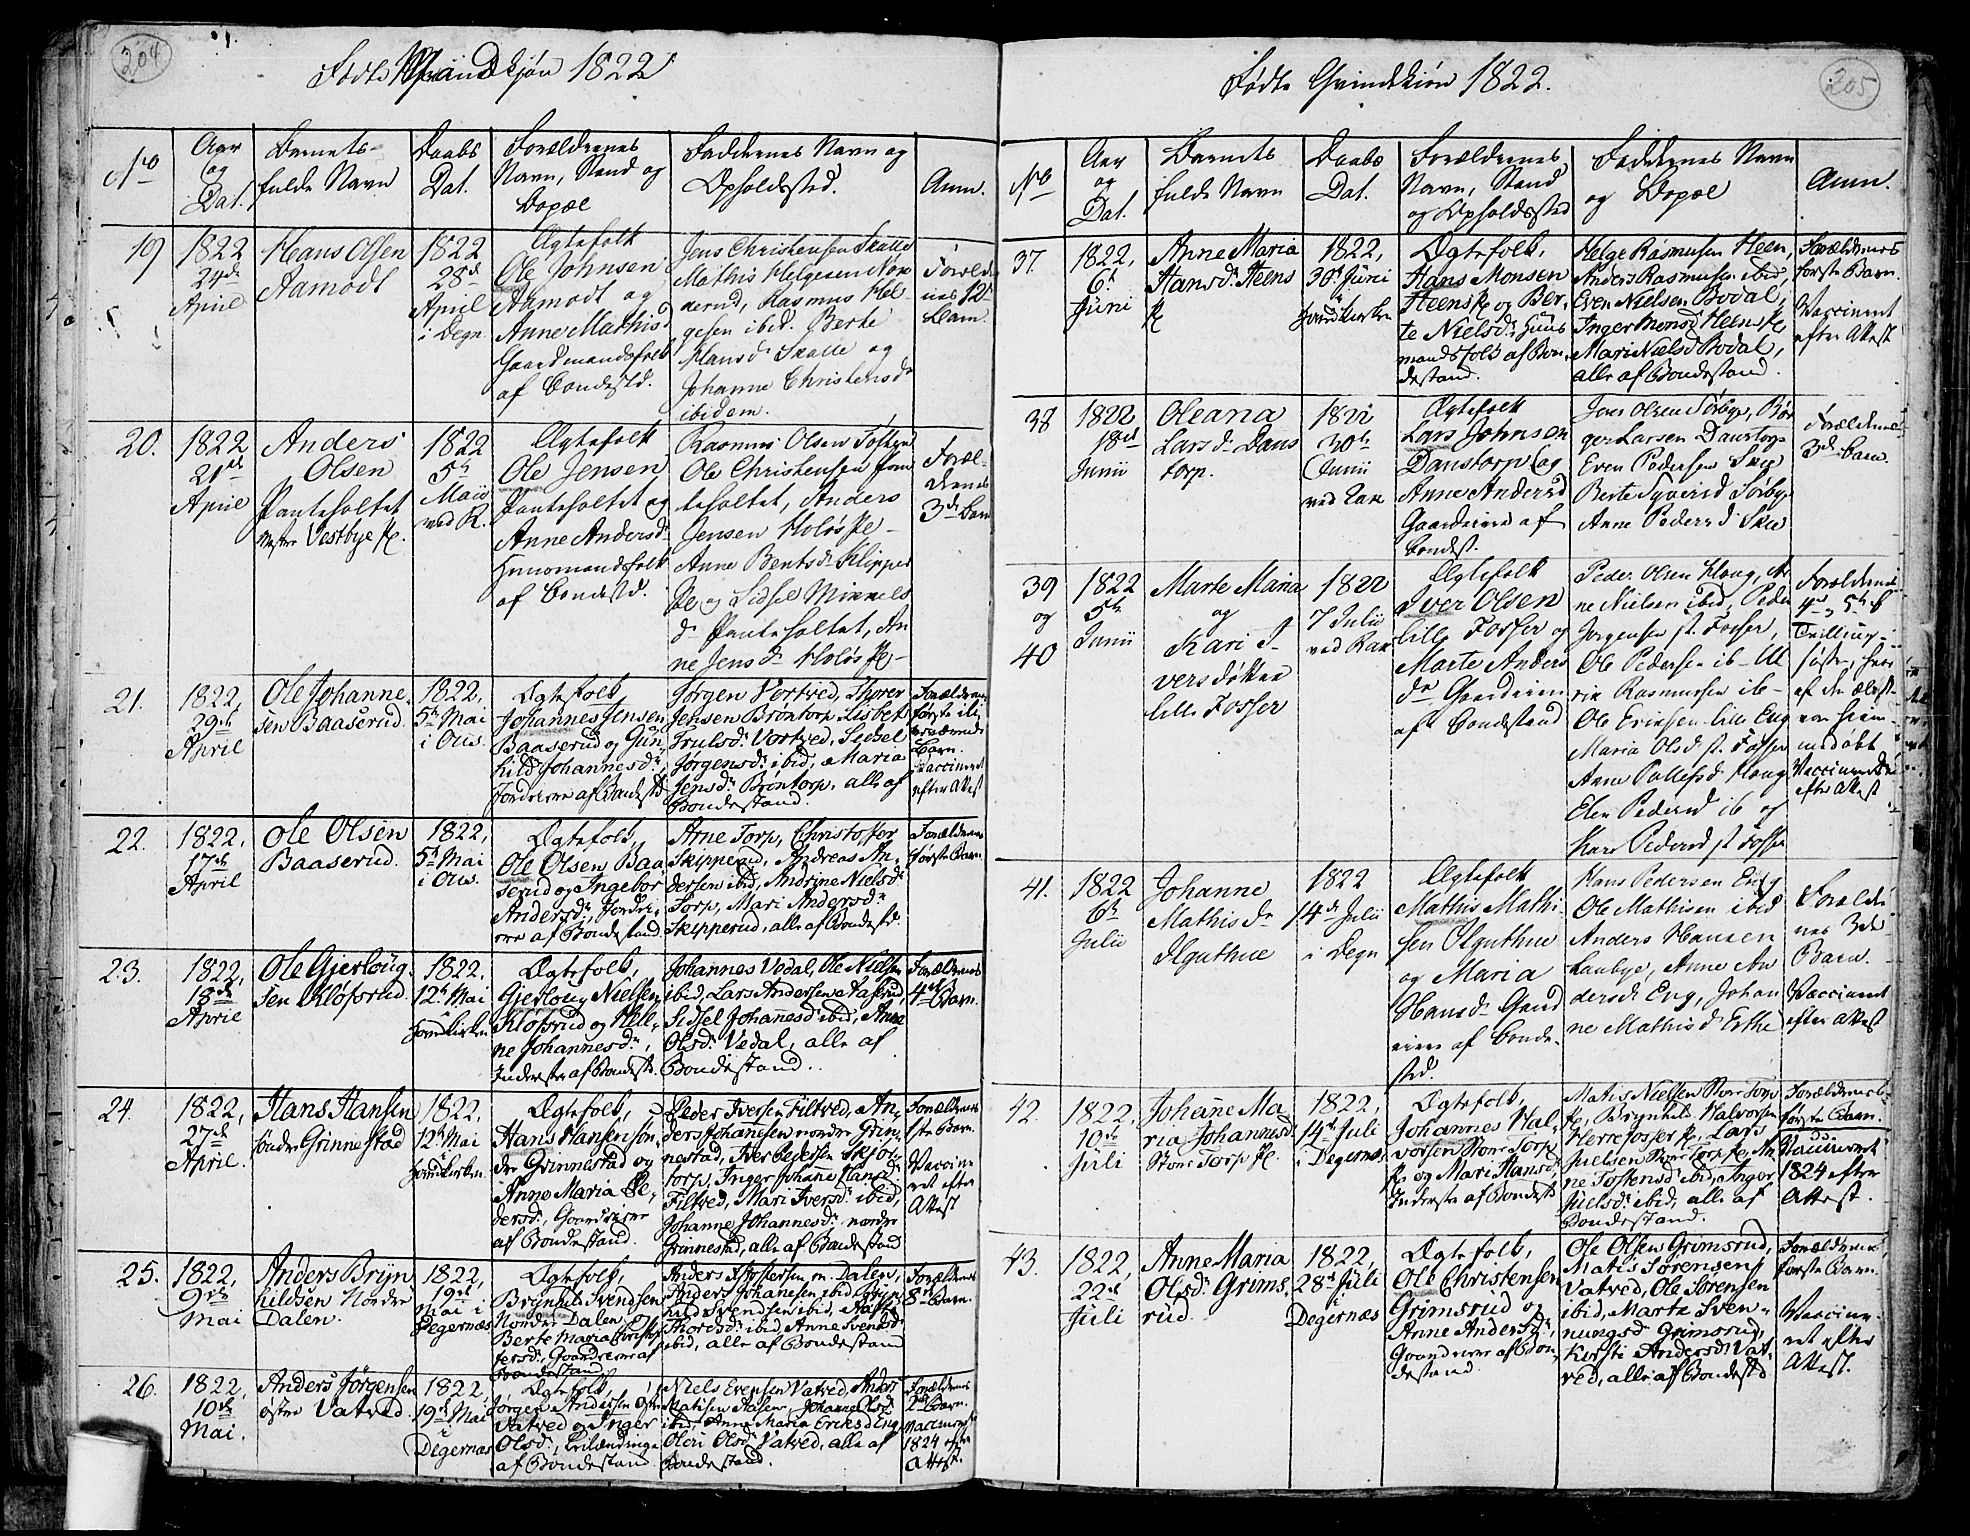 204
Fødte Mandkjøn 1822
No
Aar
og
Dat.
Barnets
fulde Navn
Daabs
Dat.
Forældrenes
Navn, Stand og
Bopæl
Faddernes Navn og
Opholdssted.
Anm.
19
1822
24de
April
Hans Olsen
Aamodt
1822
28de
April
i Degn
Ægtefolk
Ole Johnsen
Aamodt og
Anne Mathisd
Gaardmandsfolk
af Bondestd.
Jens Christensen Skalle
Mathis Helgesen
Rasmus Hel
gesen ibid. Berte
Hansd Skalle og
Johanne Christensd
ibidem.
Foræld
nes
Barn.
20.
1822
21de
April
Anders
Olsen
Panteholtet
Vestbye Pl.
1822
5te
Maii
ved R.
Ægtefolk
Ole Jensen
Panteholtet og
Anne Andersd
Huusmandsfolk
af Bondestd.
Rasmus Olsen
Ole Christensen Pan
teholtet, Anders
Jensen Holøs Pl
Anne Bentsd
Pl og Sidsel
d Panteholtet, An
ne Jensd Holøs Pl
Foræl-
drenes
3de Barn
21.
1822,
29de
April
Ole Johanne-
sen Baaserud.
1822,
5te Mai
i Øis.
Ægtefolk,
Johannes Jensen
Baaserud og Gun-
hild Johannesdr
af Bondestd
Jørgen Vortved, Thorer
Jensen Brøntorp Lisbet
Trulsdr Vortved, Sidsel
Jørgensdr ibid, Maria
Jensdr Brøntorp, alle af
Bondestand.
Forældrenes
første
Barn.
Vaccineret
efter Attest
22.
1822,
17de
April
Ole Olsen
Baaserud.
1822,
5te Mai
i Øis.
Ægtefolk,
Ole Olsen Baa
serud og Ingebor
Andersdr, Jordei-
ere af Bondestand.
Arne Torp, Christoffer
Skipperud, Andreas An-
dersen ibid, Andrine Nielsdr
Torp, Mari Andersdr
Skipperud, alle af Bondestd.
Forældrenes
første Barn.
23.
1822,
18de
April
Ole Gjerloug-
sen Kløfsrud.
1822.
12te Mai
i
Ægtefolk,
Gjerloug Nielsen
Kløfsrud og Hele-
ne Johannesdr,
Inderster af Bondestd.
Johannes Vedal, Ole Nielsen
ibid, Lars Andersen Aaserud,
Sidsel Johannesd ibid, Anne
Olsdr Vedal, alle af
Bondestand.
Forældrenes
4de Barn.
24.
1822,
27de
April.
Hans Hansen
søndre Grinnestad
1822,
12te Mai
i
Ægtefolk,
Hans Hansen søn-
dre Grinnestad og
Anne Maria Pe-
dersdr, Gaardeiere
af Bondestand.
Peder Iversen Filtved, An-
ders Johannesen nordre Grin-
nestad, Iver Pedersen
torp, Inger Johanne Hansdr
Filtved, Mari Iversdr ibid,
Johanne Johannesdr nordre
Grinnestad, alle af Bondestand
Forældrenes
1ste Barn.
Vaccine
ret efter
Attest
25.
1822,
9de
Mai
Anders Bryn
hildsen Nordre
Dalen.
1822,
19de
Mai i
Degernæs
Ægtefolk,
Brynhil Svendsen
Nordre Dalen og
Berte Maria Christof
fersdr, Gaardeiere af
Bondestand
Anders Thostersen n. Dalen,
Anders Johannesen ibid, Bryn
hild Svendsen ibid, Aasta
Thordsdr ibid Anne Svendsd
ibid, alle af Bondestand
Forældrenes
8de Barn.
26.
1822,
10de
Mai.
Anders Jørgensen
østre Vatved.
1822,
19de Mai
i
Degernæs
Ægtefolk,
Jørgen Andersen østre
Vatved og Inger
Olsdr,
af Bondestand
Niels Evensen Vatved, Anders
Matisen Johanne Olsd
ibid, Anne Maria Eriksd Eng
Oleri Olsdr Vatved, alle af
Bondestand.
Forældrenes
2de Barn.
Vaccineret
1824 efter
Attest.
205
Fødte Qvindekiøn 1822.
No
Aar
og
Dat.
Barnets
fulde Navn
Daabs
Dat.
Forældrenes
Navn, Stand
og Opholdssted
Faddernes Navn
og Bopæl
Anm.
37.
1822,
6te
Juni
Anne Maria
Hansdr Heens
Pl
1822,
30te Juni
i
Ægtefolk,
Hans Monsen
Heens Pl og Ber-
te Nielsdr, Huus
mandsfolk af Bon-
destand.
Helge Rasmusen Heen,
Anders Rasmusen ibid,
Even Nielsen Bodal,
Inger Monsd Heens Pl
Mari Nielsd Bodal,
alle af Bondestand.
Forældrenes
første Barn.
Vaccineret
efter Attest
38
1822
18de
Junii
Oleana
Larsd Dans
torp.
1822
30te
Junii
ved Rak
Ægtefolk
Lars Johnsen
Danstorp og
Anne Andersd
Gaardeiere af
Bondest.
Jens Olsen Sørbye, Bør
ger Larsen Danstorp
Even Pedersen Skie
Berte Syversd Sørbye
Anne Pedersd Skie
Forældrenes
3de Barn.
39
og
40
1822
5te
Junii
Marte Maria
og
Kari I-
versdøttre
lille Fosser
1822
7 Julii
ved Rak
Ægtefolk
Iver Olsen
lille Fosser og
Marte Anders
dr Gaardeiere
af Bondestand
Peder Olsen Kloug, Ar
ne Nielsen ibid, Peder
Jørgensen st. Fosser,
Ole Pedersen ib- Ul
rik Rasmussen ib-
Ole Eriksen lille Eng
Maria Olsd st. Fosser
Anne Pallesd Kloug
Elen Pedersd ib og
Kari Pedersd st Fosser
Forældrenes
4de og 5te B
Tvilling-
søstre, hvor
af den ældste
var hjem-
medøbt
Vaccinerede
efter Attest
41.
1822
6te
Julii
Johanne
Mathisd
Olguthue
1822
14de Julii
i Degn
Ægtefolk
Mathis Mathi-
sen Olguthue
og Maria
Hansd Gaard
eiere af Bonde-
std.
Hans Pedersen Eng
Ole Mathisen ibid
Anders Hansen
Haabye, Anne An
dersd Eng, Johan
ne Mathisd
Foræld
nes 3de
Barn.
Vaccineret
efter Attest
42
1822,
10de
Juli
Johanne Ma-
ria Johannesd
Store Torp Pl.
1822,
14de Juli
i Degernæs
Ægtefolk,
Johannes Hal-
vorsen Store Torp
Pl og Mari Hansdr
Inderster af Bondestd
Matis Nielsen Store Torp
Pl, Brynhil Halvorsen
Herrefosser Pl, Lars
Juelsen Store Torp Pl, An
ne Tostensd ibid, Inger
Juelsdr ibid, alle af
Bondestand.
Forældrenes
første Barn.
Vaccineret
1824 efter
Attest.
43.
1822,
22de
Juli
Anne Maria
Olsdr Grims
rud.
1822,
28de Juli
i
Degernæs
Ægtefolk,
Ole Christensen
Grimsrud og
Anne Andersdr,
Gaardeiere af Bon-
destand.
Ole Olsen Grimsrud,
Matis Sørensen
Vatved, Ole Sørensen
ibid, Marte Sven-
nungsd Grimsrud,
Kirsti Andersd Vat-
ved, alle af Bondestd
Forældrenes
første Barn.
Vaccine-
ret efter
Attest.